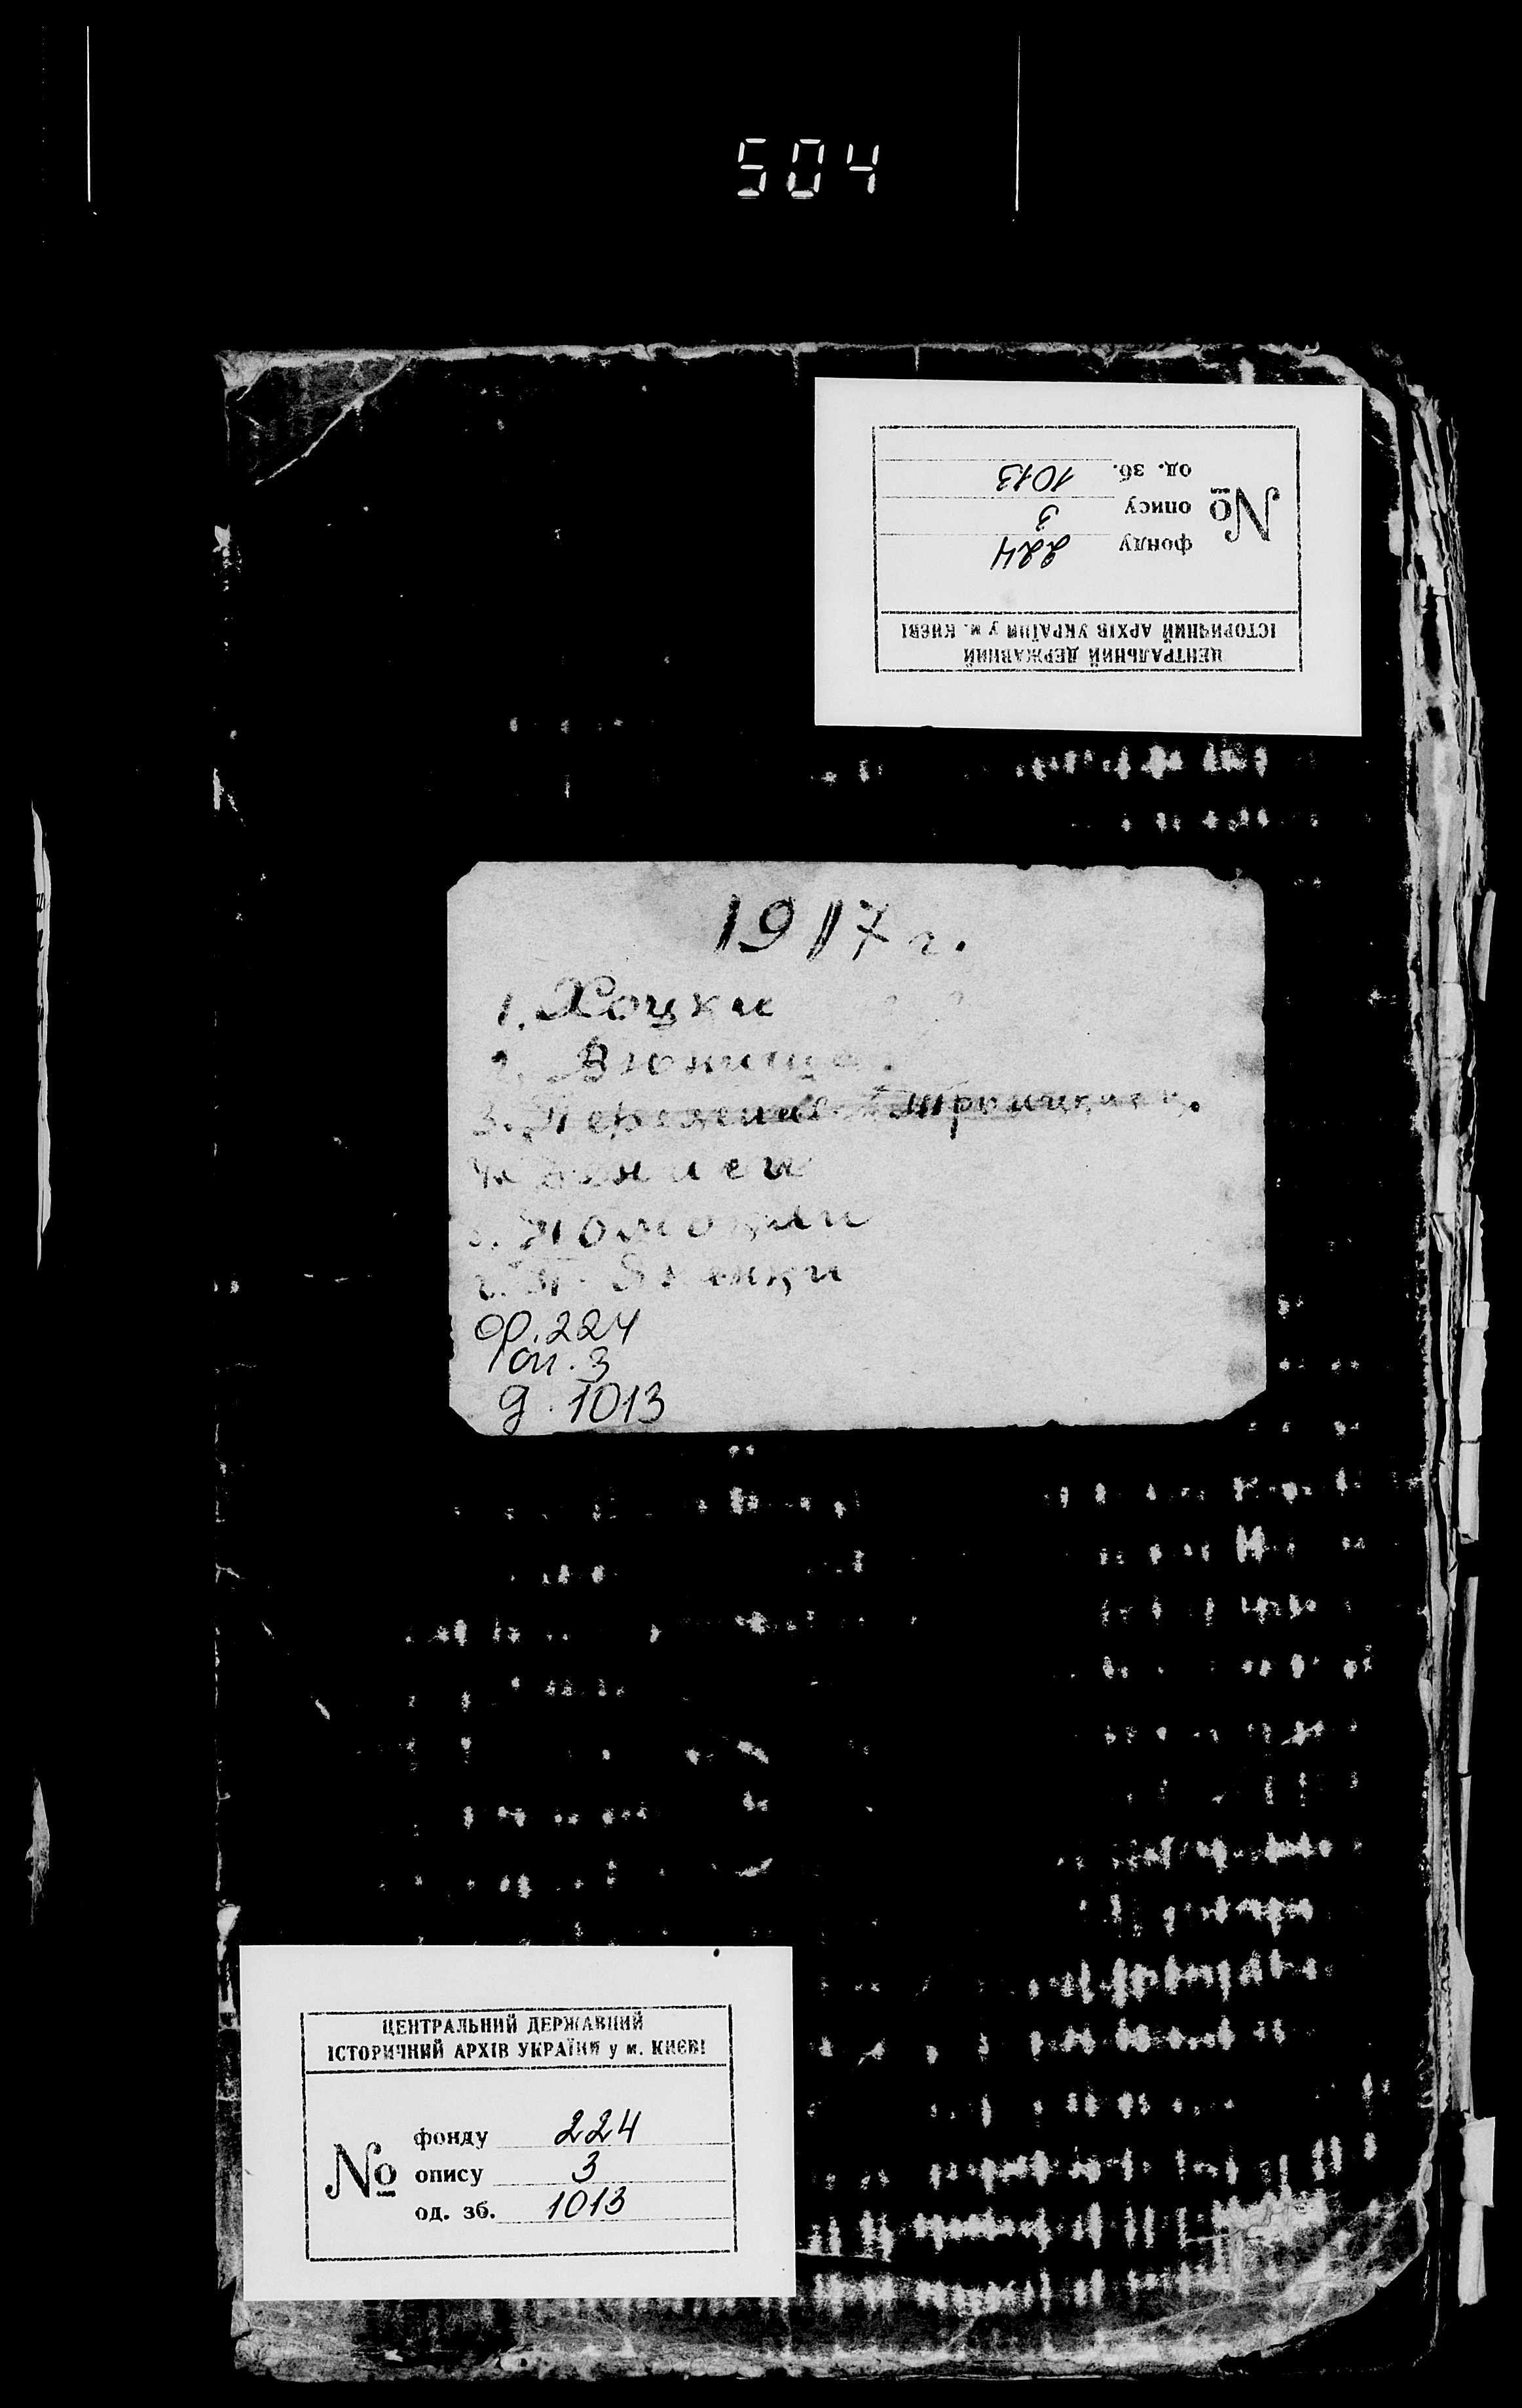 504
ЦЕНТРАЛЬНИЙ ДЕРЖАВНИЙ
ІСТОРИЧНИЙ АРХІВ УКРАЇНИ у м. КИЄВІ
№
фонду 224
опису 3
од. зб. 1013
1917 г.
1. Хоцки
2.
3.
4.
5. Помокли
6.
ф. 224
оп. 3
д. 1013
ЦЕНТРАЛЬНИЙ ДЕРЖАВНИЙ
ІСТОРИЧНИЙ АРХІВ УКРАЇНИ у м. КИЄВІ
№
фонду 224
опису 3
од. зб. 1013